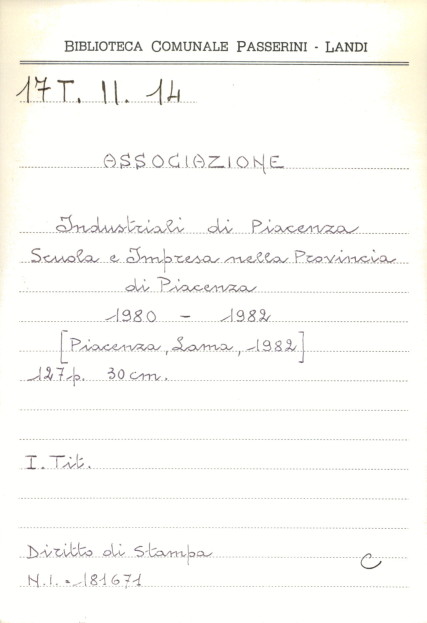 BIBLIOTECA COMUNALE PASSERINI - LANDI
17 T. II. 14
ASSOCIAZIONE
Industriali di Piacenza
Scuola e Impresa nella Provincia
di Piacenza
1980 - 1982
[Piacenza, Lama, 1982]
127 p. 30 cm.
I. Tit.
Diritto di Stampa
C
N.I. = 181671